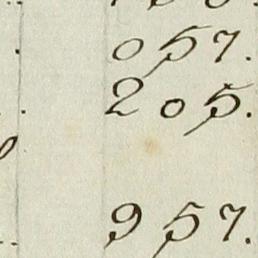 057.
205.
957.